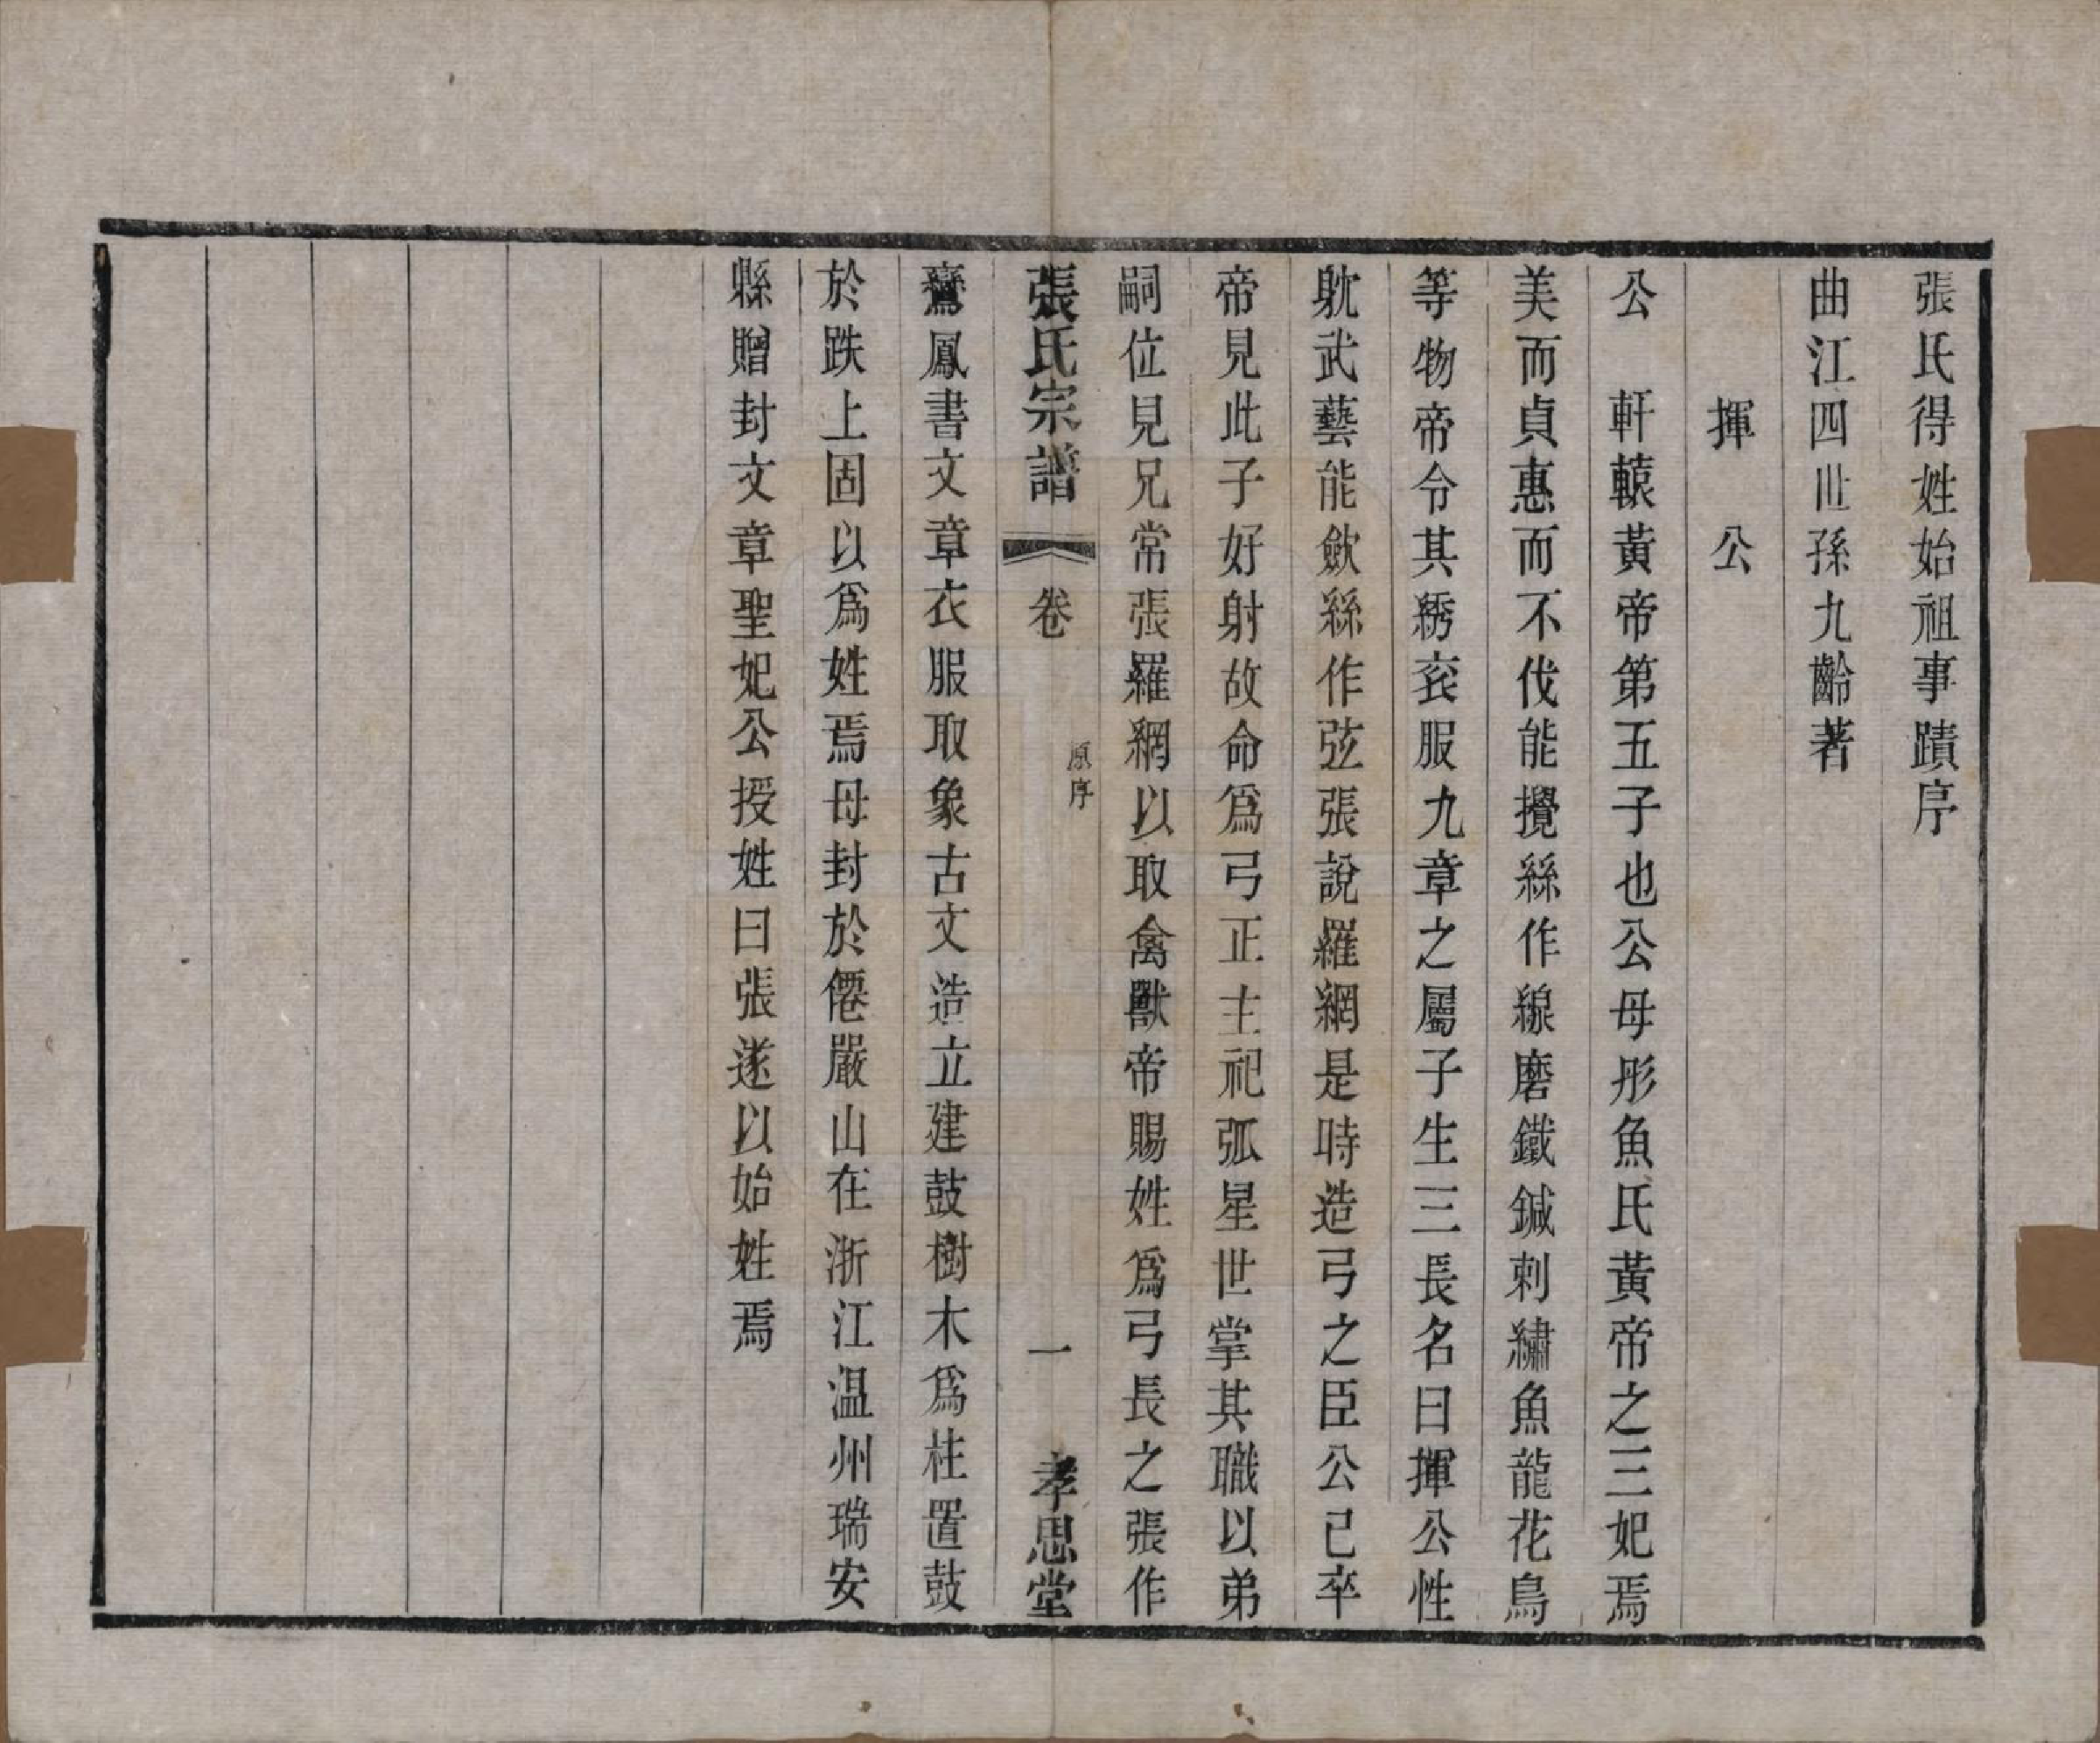 張氏得姓始祖事蹟序
曲江四世孫九齡著
揮公
公　軒轅黃帝第五子也公母彤魚氏黃帝之三妃焉
美而貞惠而不伐能攪絲作線磨鐵鍼刺繡魚龍花鳥
等物帝令其綉衮服九章之屬子生三長名曰揮公性
躭武藝能歛絲作弦張說羅網是時造弓之臣公已卒
帝見此子好射故命爲弓正主祀弧星世掌其職以弟
嗣位見兄常張羅網以取禽獸帝賜姓爲弓長之張作
張氏宗譜　卷　原序　一　孝思堂
鸞鳳書文章衣服取象古文造立建鼓樹木爲柱置鼓
於跌上固以爲姓焉母封於僊嚴山在浙江温州瑞安
縣贈封文章聖妃公授姓曰張遂以始姓焉